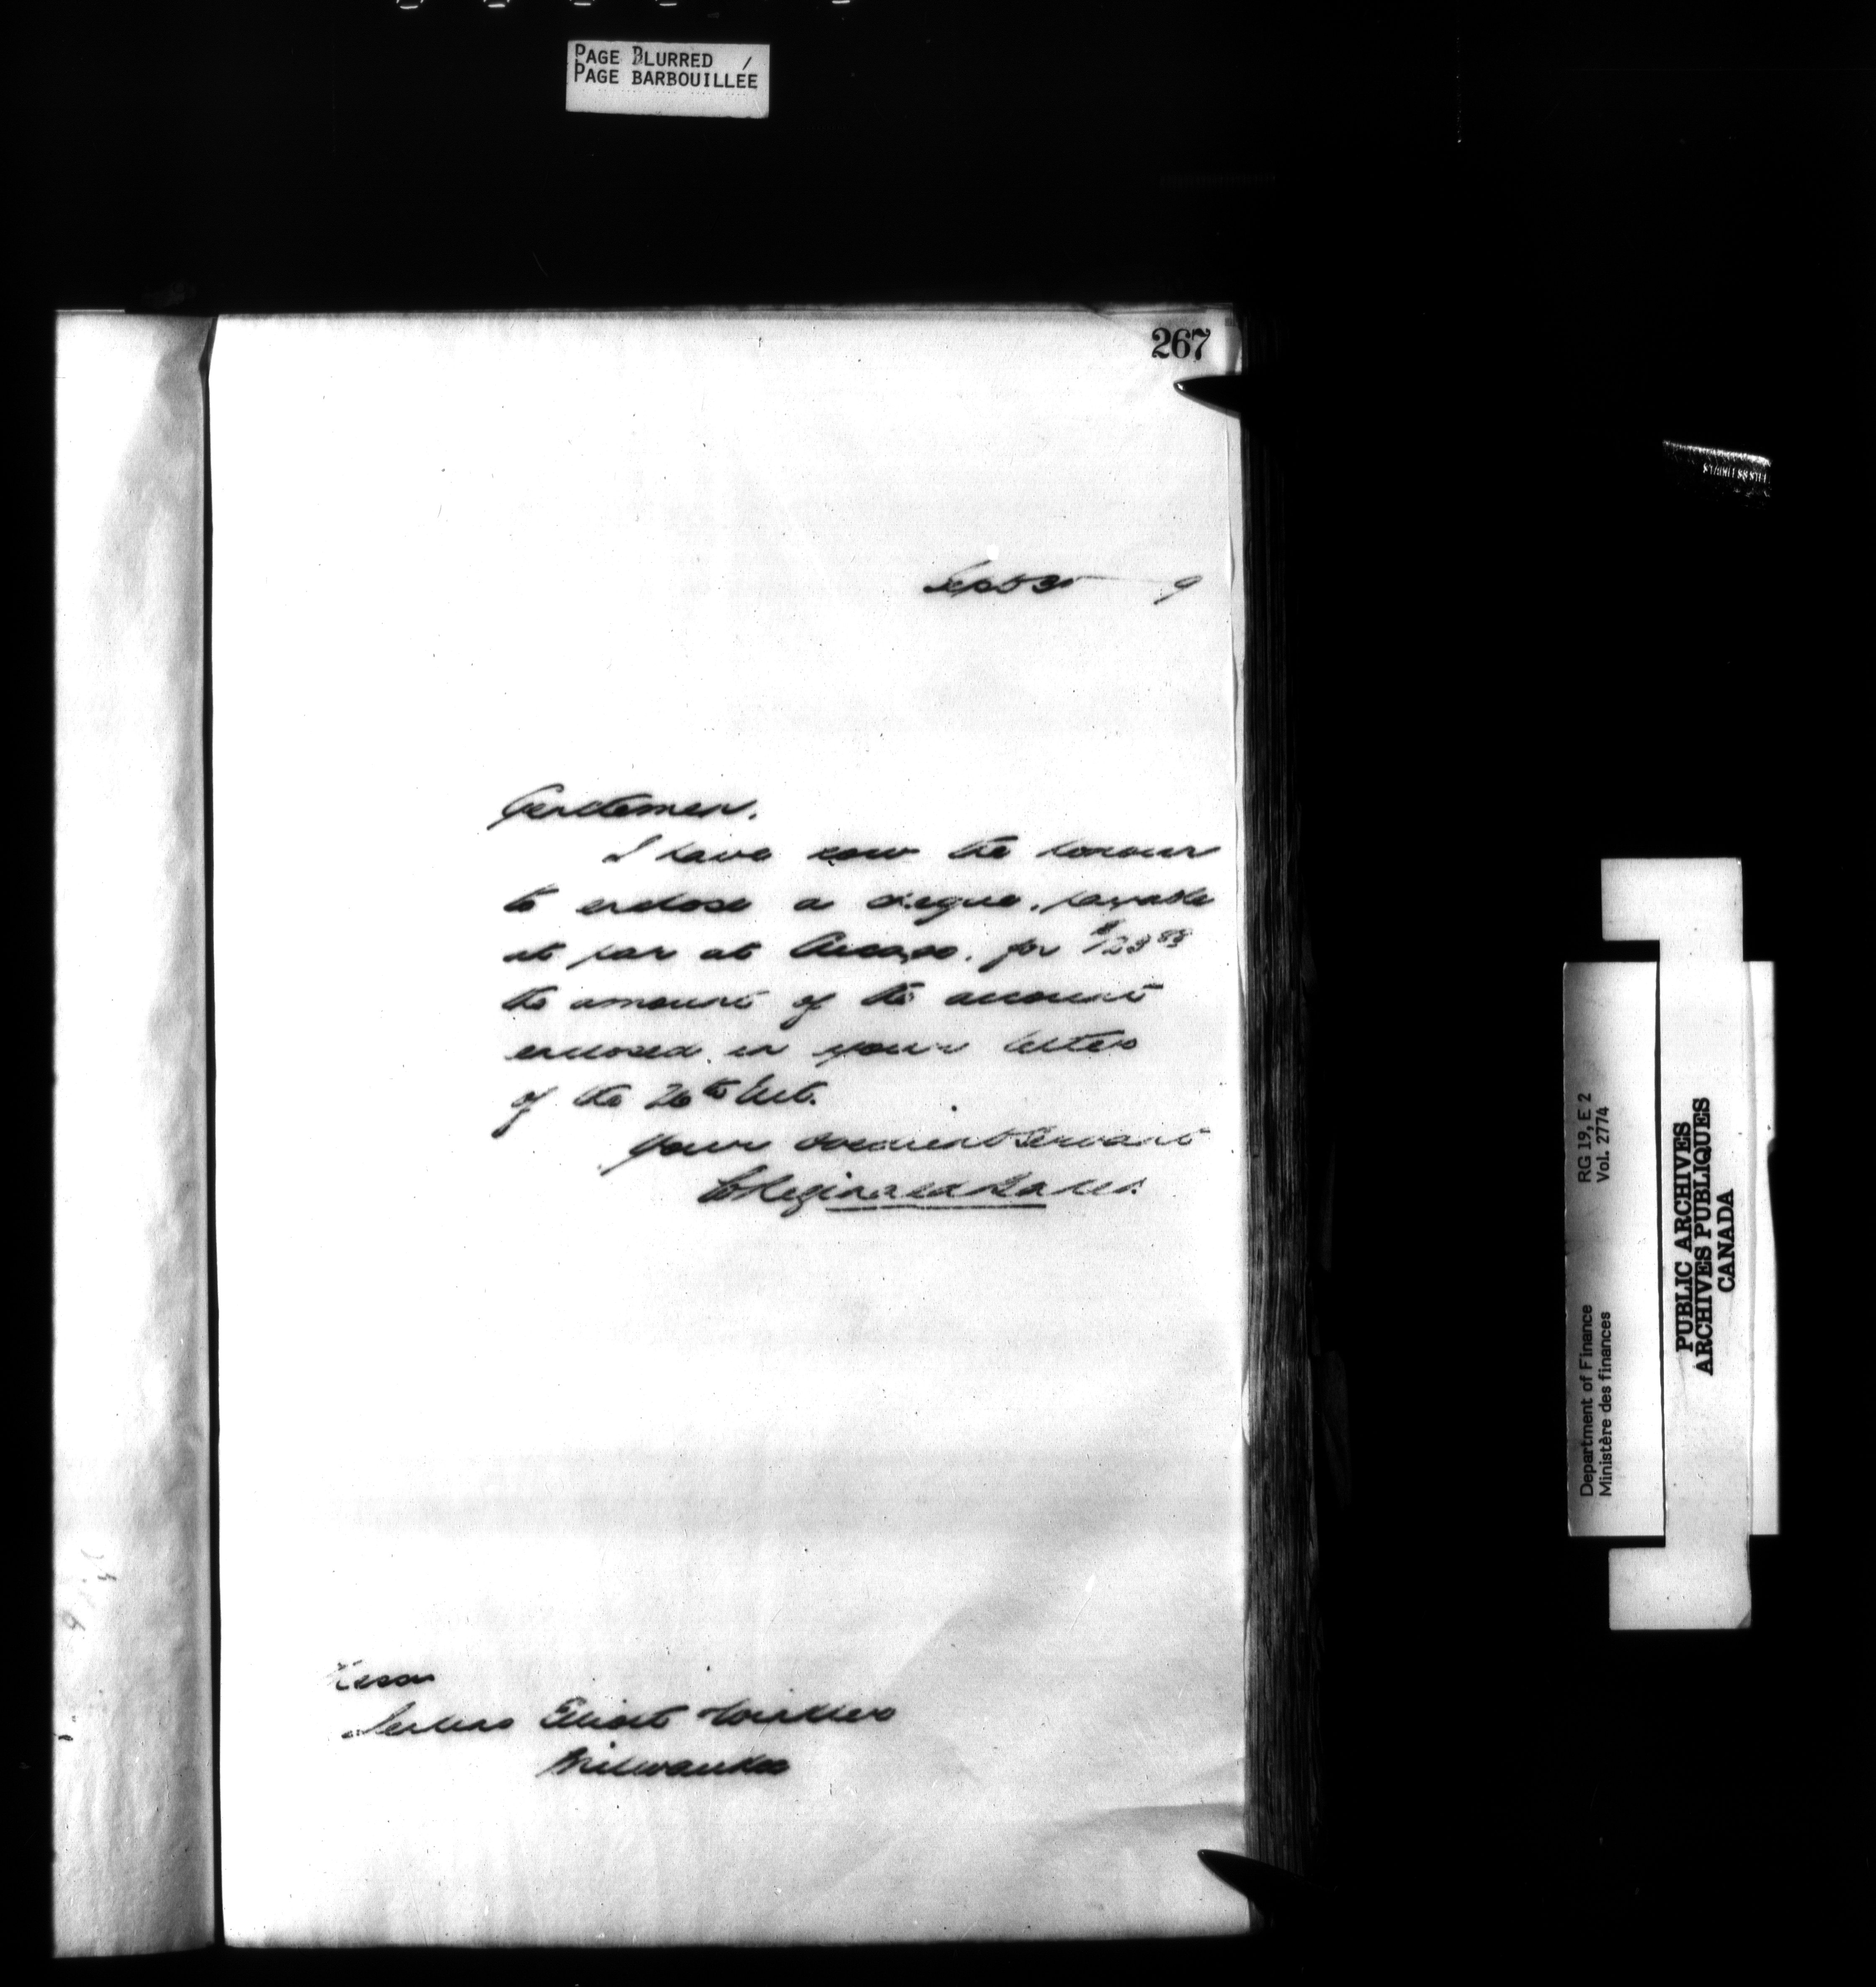 PAGE BLURRED
PAGE BARBOUILLÉE
267
Sept 30 9
Gentlemen.
I have now the honour
to enclose a cheque, payable
at par at Chicago. for $123.88
the amount of the account
enclosed in your letter
of the 26th Ult.
Your obedient Servant
Reginald
Messrs
Elliott Winkler
Milwaukee
Department of Finance
Ministère des finances
RG 19, E 2
Vol. 2774
PUBLIC ARCHIVES
ARCHIVES PUBLIQUES
CANADA